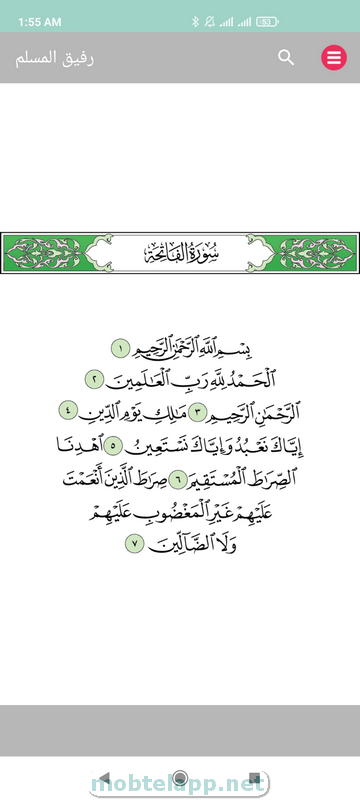 1:55 AM 53
رفيق المسلم
سُورَةُ الفَاتِحَةِ
بِسْمِ ٱللَّهِ ٱلرَّحْمَٰنِ ٱلرَّحِيمِ ١
ٱلْحَمْدُ لِلَّهِ رَبِّ ٱلْعَٰلَمِينَ ٢
ٱلرَّحْمَٰنِ ٱلرَّحِيمِ ٣ مَٰلِكِ يَوْمِ ٱلدِّينِ ٤
إِيَّاكَ نَعْبُدُ وَإِيَّاكَ نَسْتَعِينُ ٥ ٱهْدِنَا
ٱلصِّرَٰطَ ٱلْمُسْتَقِيمَ ٦ صِرَٰطَ ٱلَّذِينَ أَنْعَمْتَ
عَلَيْهِمْ غَيْرِ ٱلْمَغْضُوبِ عَلَيْهِمْ
وَلَا ٱلضَّآلِّينَ ٧
mobtelapp.net